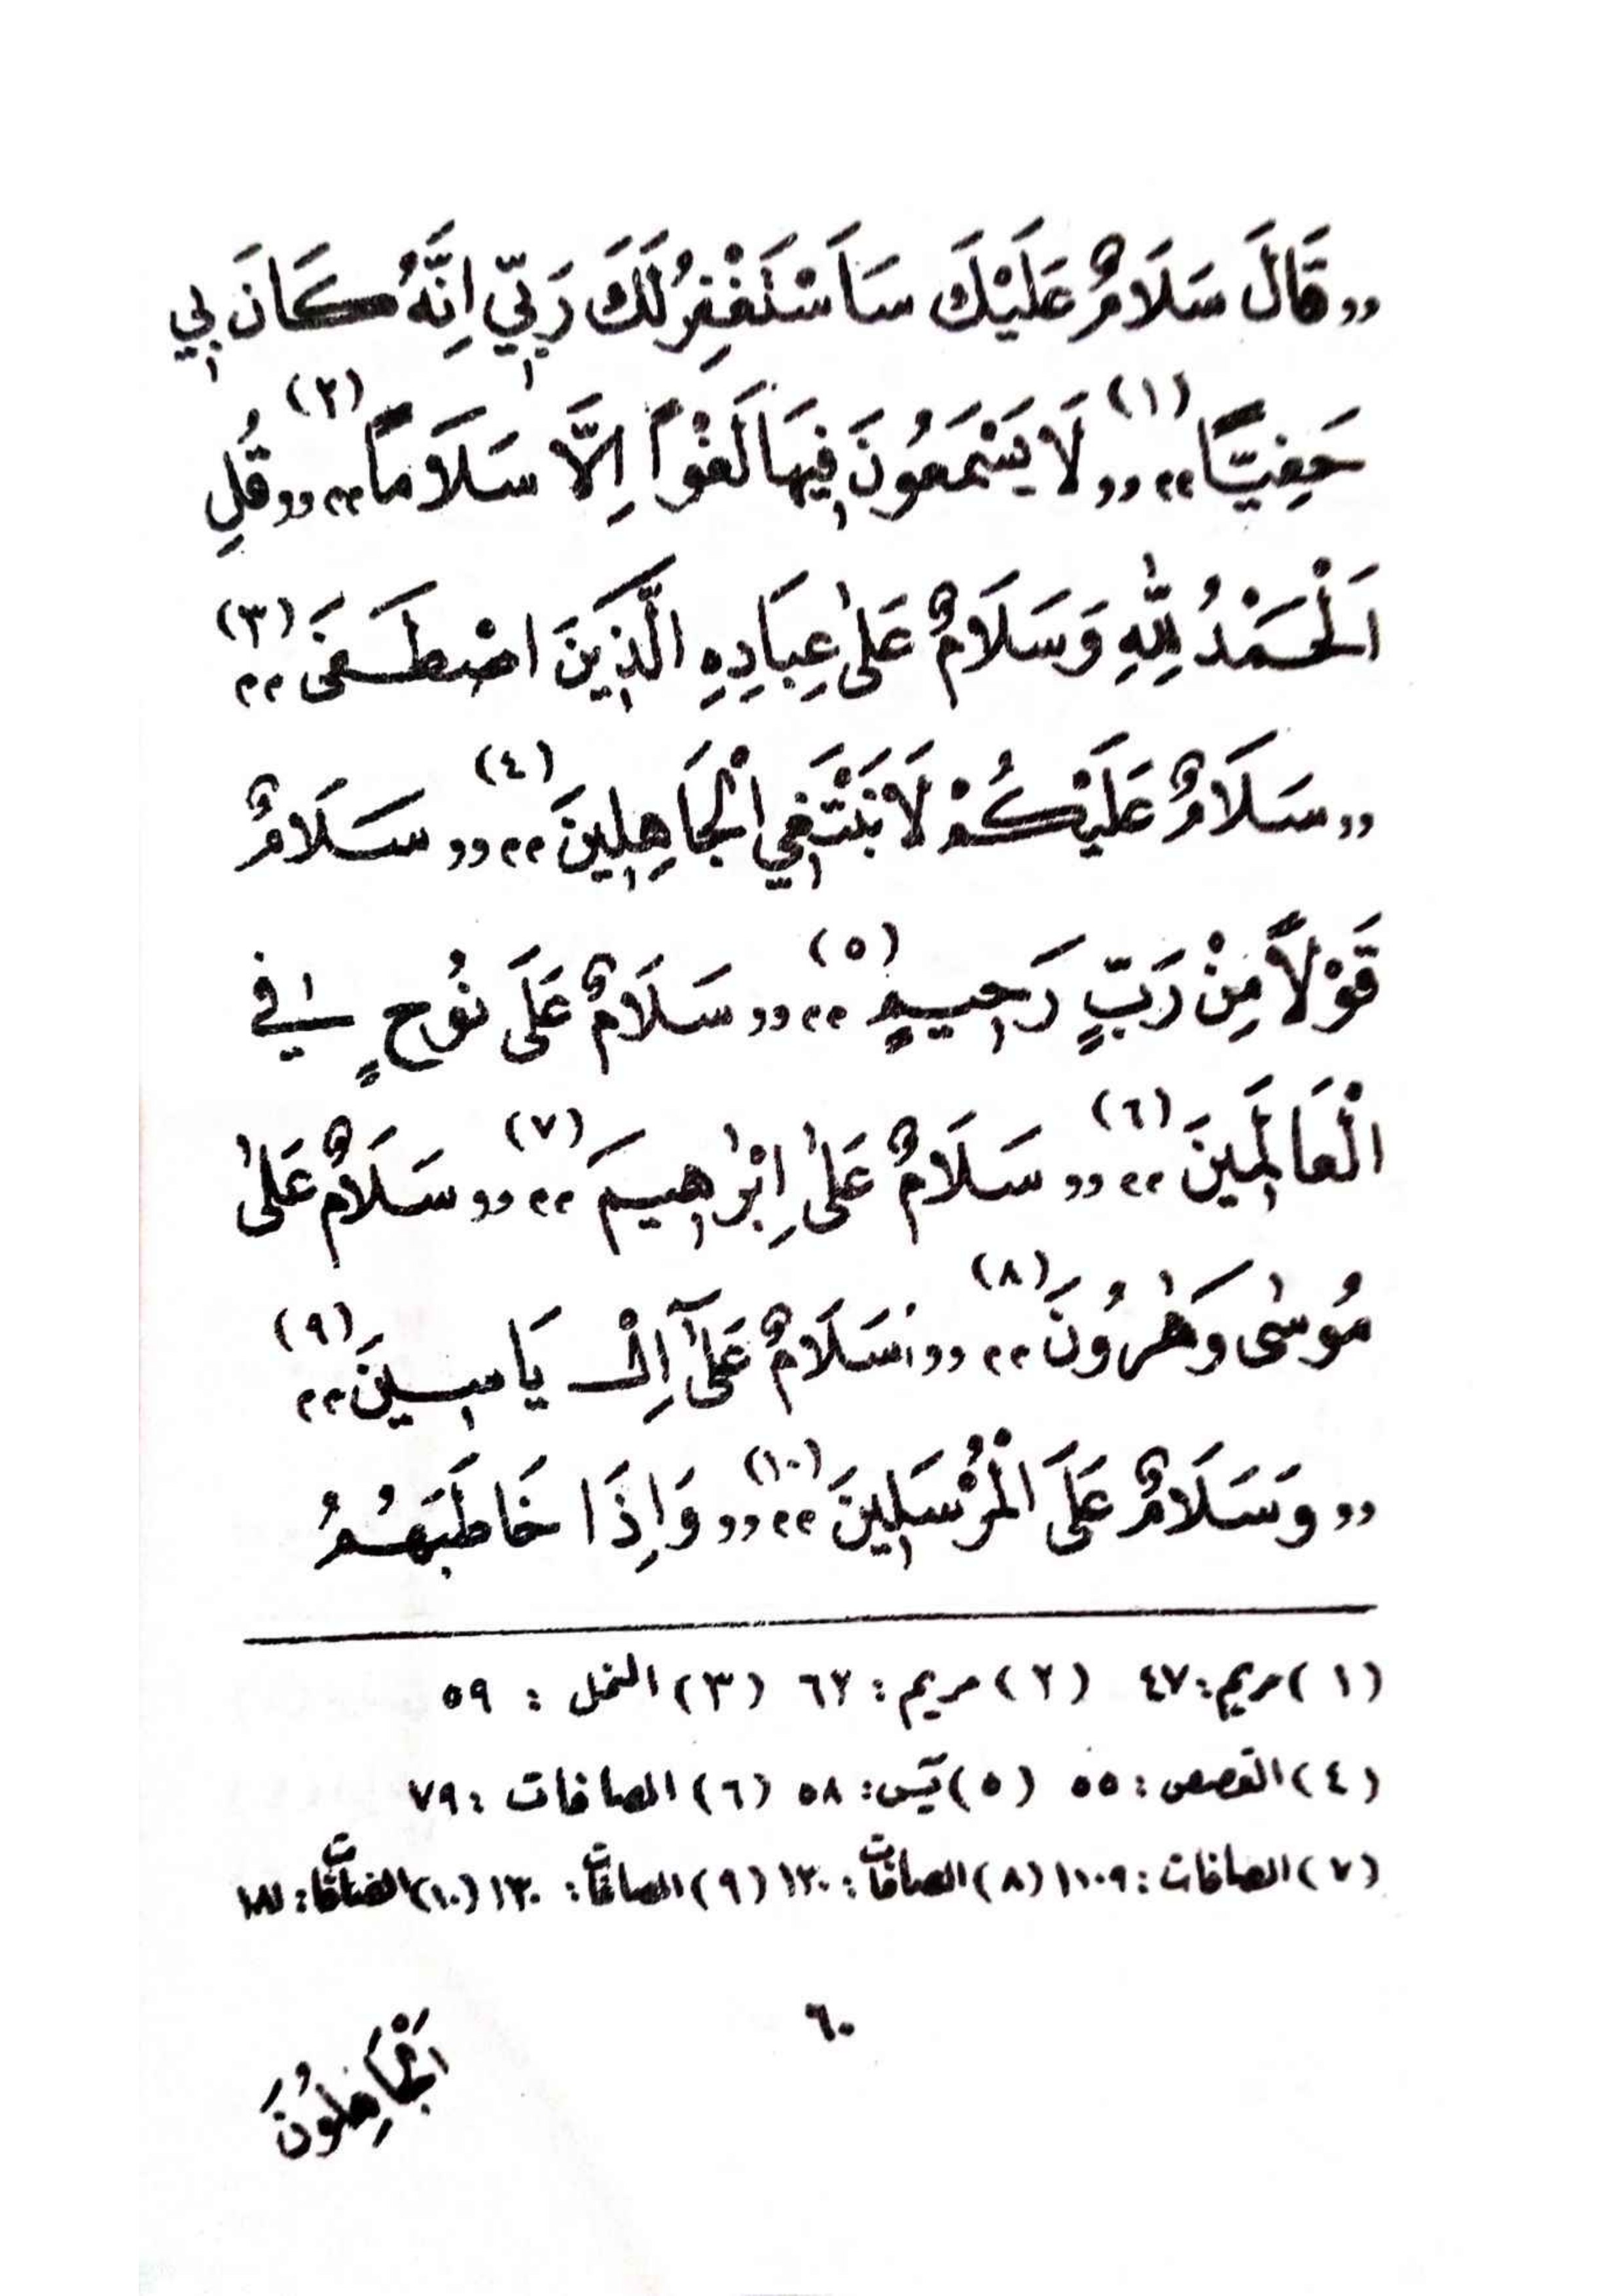 ,, قَالَ سَلَامٌ عَلَيْكَ سَاَسْتَغْفِرُ لَكَ رَبِّي اِنَّهُ كَانَ بِي
حَفِيًّا ،، (١) ,, لَا يَسْمَعُونَ فِيهَا لَغْوًا اِلَّا سَلَامًا ،، (٢) ,, قُلِ
اَلْحَمْدُ لِلّٰهِ وَسَلَامٌ عَلٰى عِبَادِهِ الَّذِينَ اصْطَفَى ،، (٣)
,, سَلَامٌ عَلَيْكُمْ لَا نَبْتَغِي الْجَاهِلِينَ ،، (٤) ,, سَلَامٌ
قَوْلًا مِنْ رَبٍّ رَحِيمٍ ،، (٥) ,, سَلَامٌ عَلَى نُوحٍ فِي
الْعَالَمِينَ ،، (٦) ,, سَلَامٌ عَلٰى اِبْرٰهِيمَ ،، (٧) ,, سَلَامٌ عَلٰى
مُوسٰى وَهٰرُونَ ،، (٨) ,, سَلَامٌ عَلٰٓى اِلْ يَاسِينَ ،، (٩)
,, وَسَلَامٌ عَلَى الْمُرْسَلِينَ ،، (١٠) ,, وَاِذَا خَاطَبَهُمُ
(١) مريم: ٤٧ (٢) مريم: ٦٢ (٣) النمل: ٥٩
(٤) القصص: ٥٥ (٥) يٓس: ٥٨ (٦) الصافات: ٧٩
(٧) الصافات: ١١٠٩ (٨) الصافات: ١٢٠ (٩) الصافات: ١٣٠ (١٠) الصافات: ١٨١
٦٠
اَلْجَاهِلُونَ